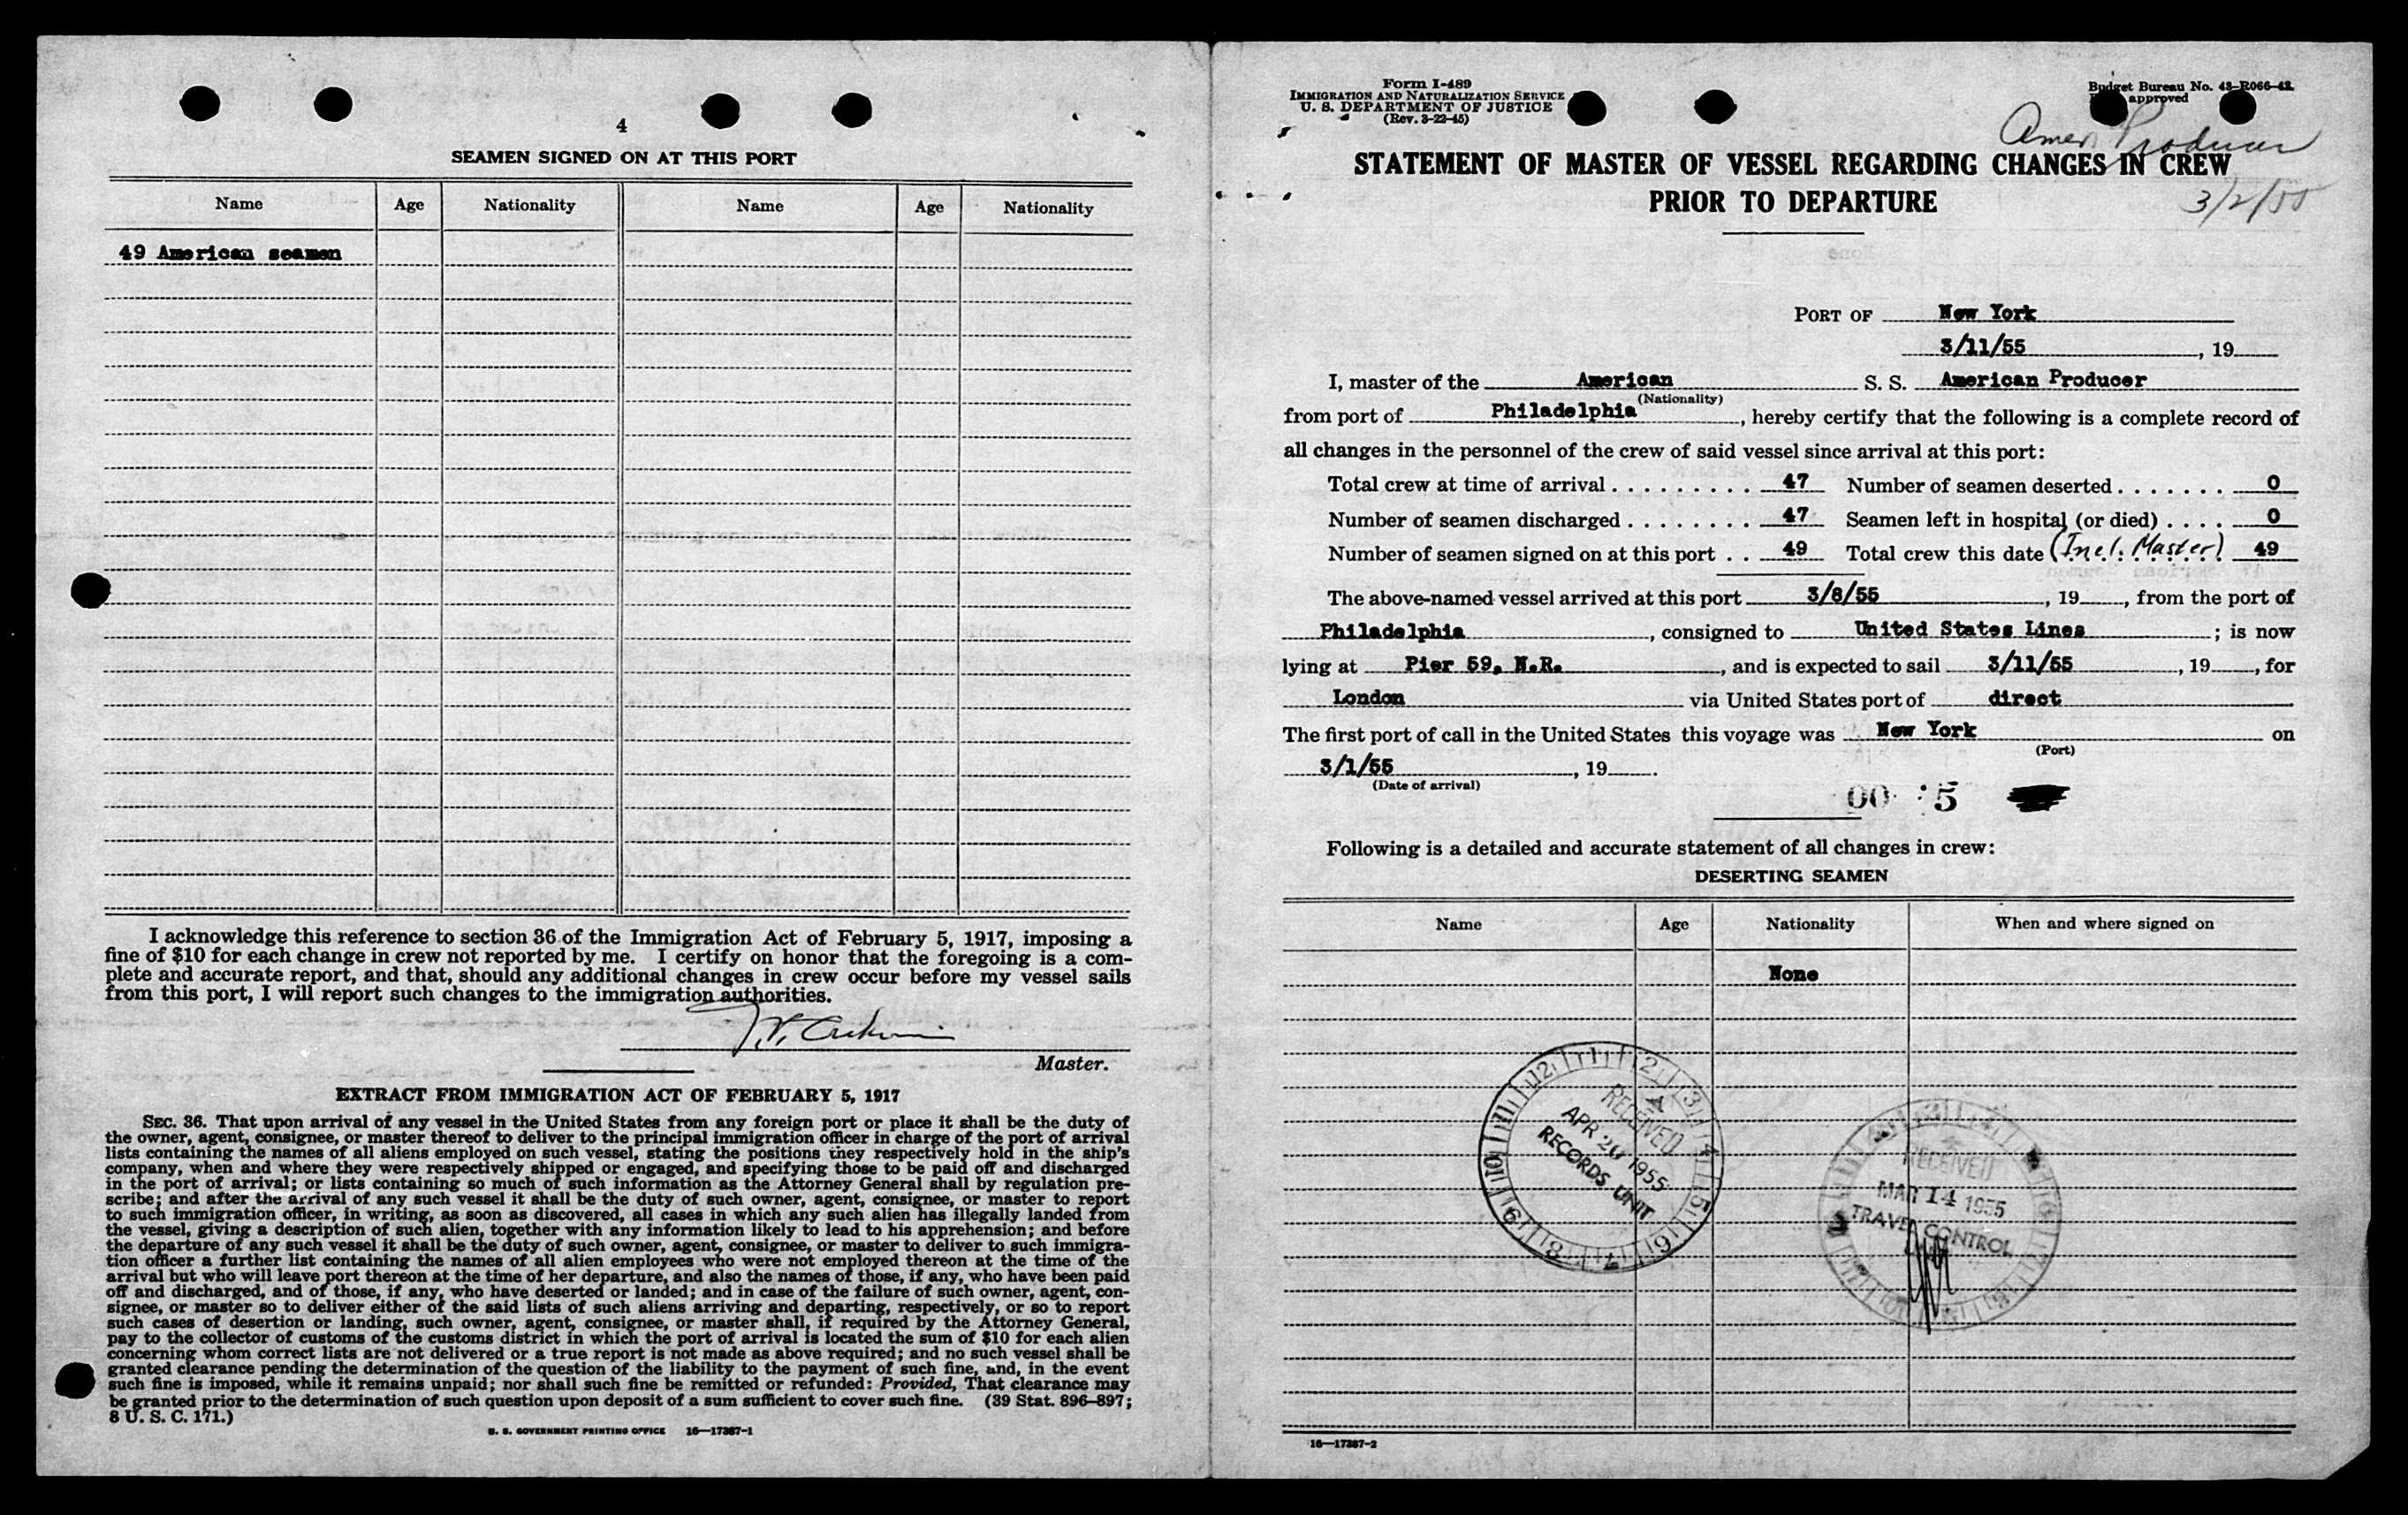 4
SEAMEN SIGNED ON AT THIS PORT
Name Age Nationality Name Age Nationality
49 American seamen
I acknowledge this reference to section 36 of the Immigration Act of February 5, 1917, imposing a
fine of $10 for each change in crew not reported by me. I certify on honor that the foregoing is a com-
plete and accurate report, and that, should any additional changes in crew occur before my vessel sails
from this port, I will report such changes to the immigration authorities.
Master.
EXTRACT FROM IMMIGRATION ACT OF FEBRUARY 5, 1917
SEC. 36. That upon arrival of any vessel in the United States from any foreign port or place it shall be the duty of
the owner, agent, consignee, or master thereof to deliver to the principal immigration officer in charge of the port of arrival
lists containing the names of all aliens employed on such vessel, stating the positions they respectively hold in the ship's
company, when and where they were respectively shipped or engaged, and specifying those to be paid off and discharged
in the port of arrival; or lists containing so much of such information as the Attorney General shall by regulation pre-
scribe; and after the arrival of any such vessel it shall be the duty of such owner, agent, consignee, or master to report
to such immigration officer, in writing, as soon as discovered, all cases in which any such alien has illegally landed from
the vessel, giving a description of such alien, together with any information likely to lead to his apprehension; and before
the departure of any such vessel it shall be the duty of such owner, agent, consignee, or master to deliver to such immigra-
tion officer a further list containing the names of all alien employees who were not employed thereon at the time of the
arrival but who will leave port thereon at the time of her departure, and also the names of those, if any, who have been paid
off and discharged, and of those, if any, who have deserted or landed; and in case of the failure of such owner, agent, con-
signee, or master so to deliver either of the said lists of such aliens arriving and departing, respectively, or so to report
such cases of desertion or landing, such owner, agent, consignee, or master shall, if required by the Attorney General,
pay to the collector of customs of the customs district in which the port of arrival is located the sum of $10 for each alien
concerning whom correct lists are not delivered or a true report is not made as above required; and no such vessel shall be
granted clearance pending the determination of the question of the liability to the payment of such fine, and, in the event
such fine is imposed, while it remains unpaid; nor shall such fine be remitted or refunded: Provided, That clearance may
be granted prior to the determination of such question upon deposit of a sum sufficient to cover such fine. (39 Stat. 896–897;
8 U. S. C. 171.)
U. S. GOVERNMENT PRINTING OFFICE 16—17387-1
Form I-489
IMMIGRATION AND NATURALIZATION SERVICE
U. S. DEPARTMENT OF JUSTICE
(Rev. 3-22-45)
Budget Bureau No. 43-R066-42.
approved
Amer Producer
3/2/55
STATEMENT OF MASTER OF VESSEL REGARDING CHANGES IN CREW
PRIOR TO DEPARTURE
PORT OF New York
3/11/55, 19
I, master of the American S. S. American Producer
(Nationality)
from port of Philadelphia, hereby certify that the following is a complete record of
all changes in the personnel of the crew of said vessel since arrival at this port:
Total crew at time of arrival . . . . . . . . . . 47 Number of seamen deserted . . . . . . . 0
Number of seamen discharged . . . . . . . . 47 Seamen left in hospital (or died) . . . . 0
Number of seamen signed on at this port . . 49 Total crew this date (Incl. Master) 49
The above-named vessel arrived at this port 3/8/55, 19, from the port of
Philadelphia, consigned to United States Lines; is now
lying at Pier 59, N.R., and is expected to sail 3/11/55, 19, for
London via United States port of direct
The first port of call in the United States this voyage was New York on
(Port)
3/1/55, 19.
(Date of arrival)
00 5
Following is a detailed and accurate statement of all changes in crew:
DESERTING SEAMEN
Name Age Nationality When and where signed on
None
RECEIVED
APR 20 1955
RECORDS UNIT
RECEIVED
MAR 14 1955
TRAVEL CONTROL
16—17387-2